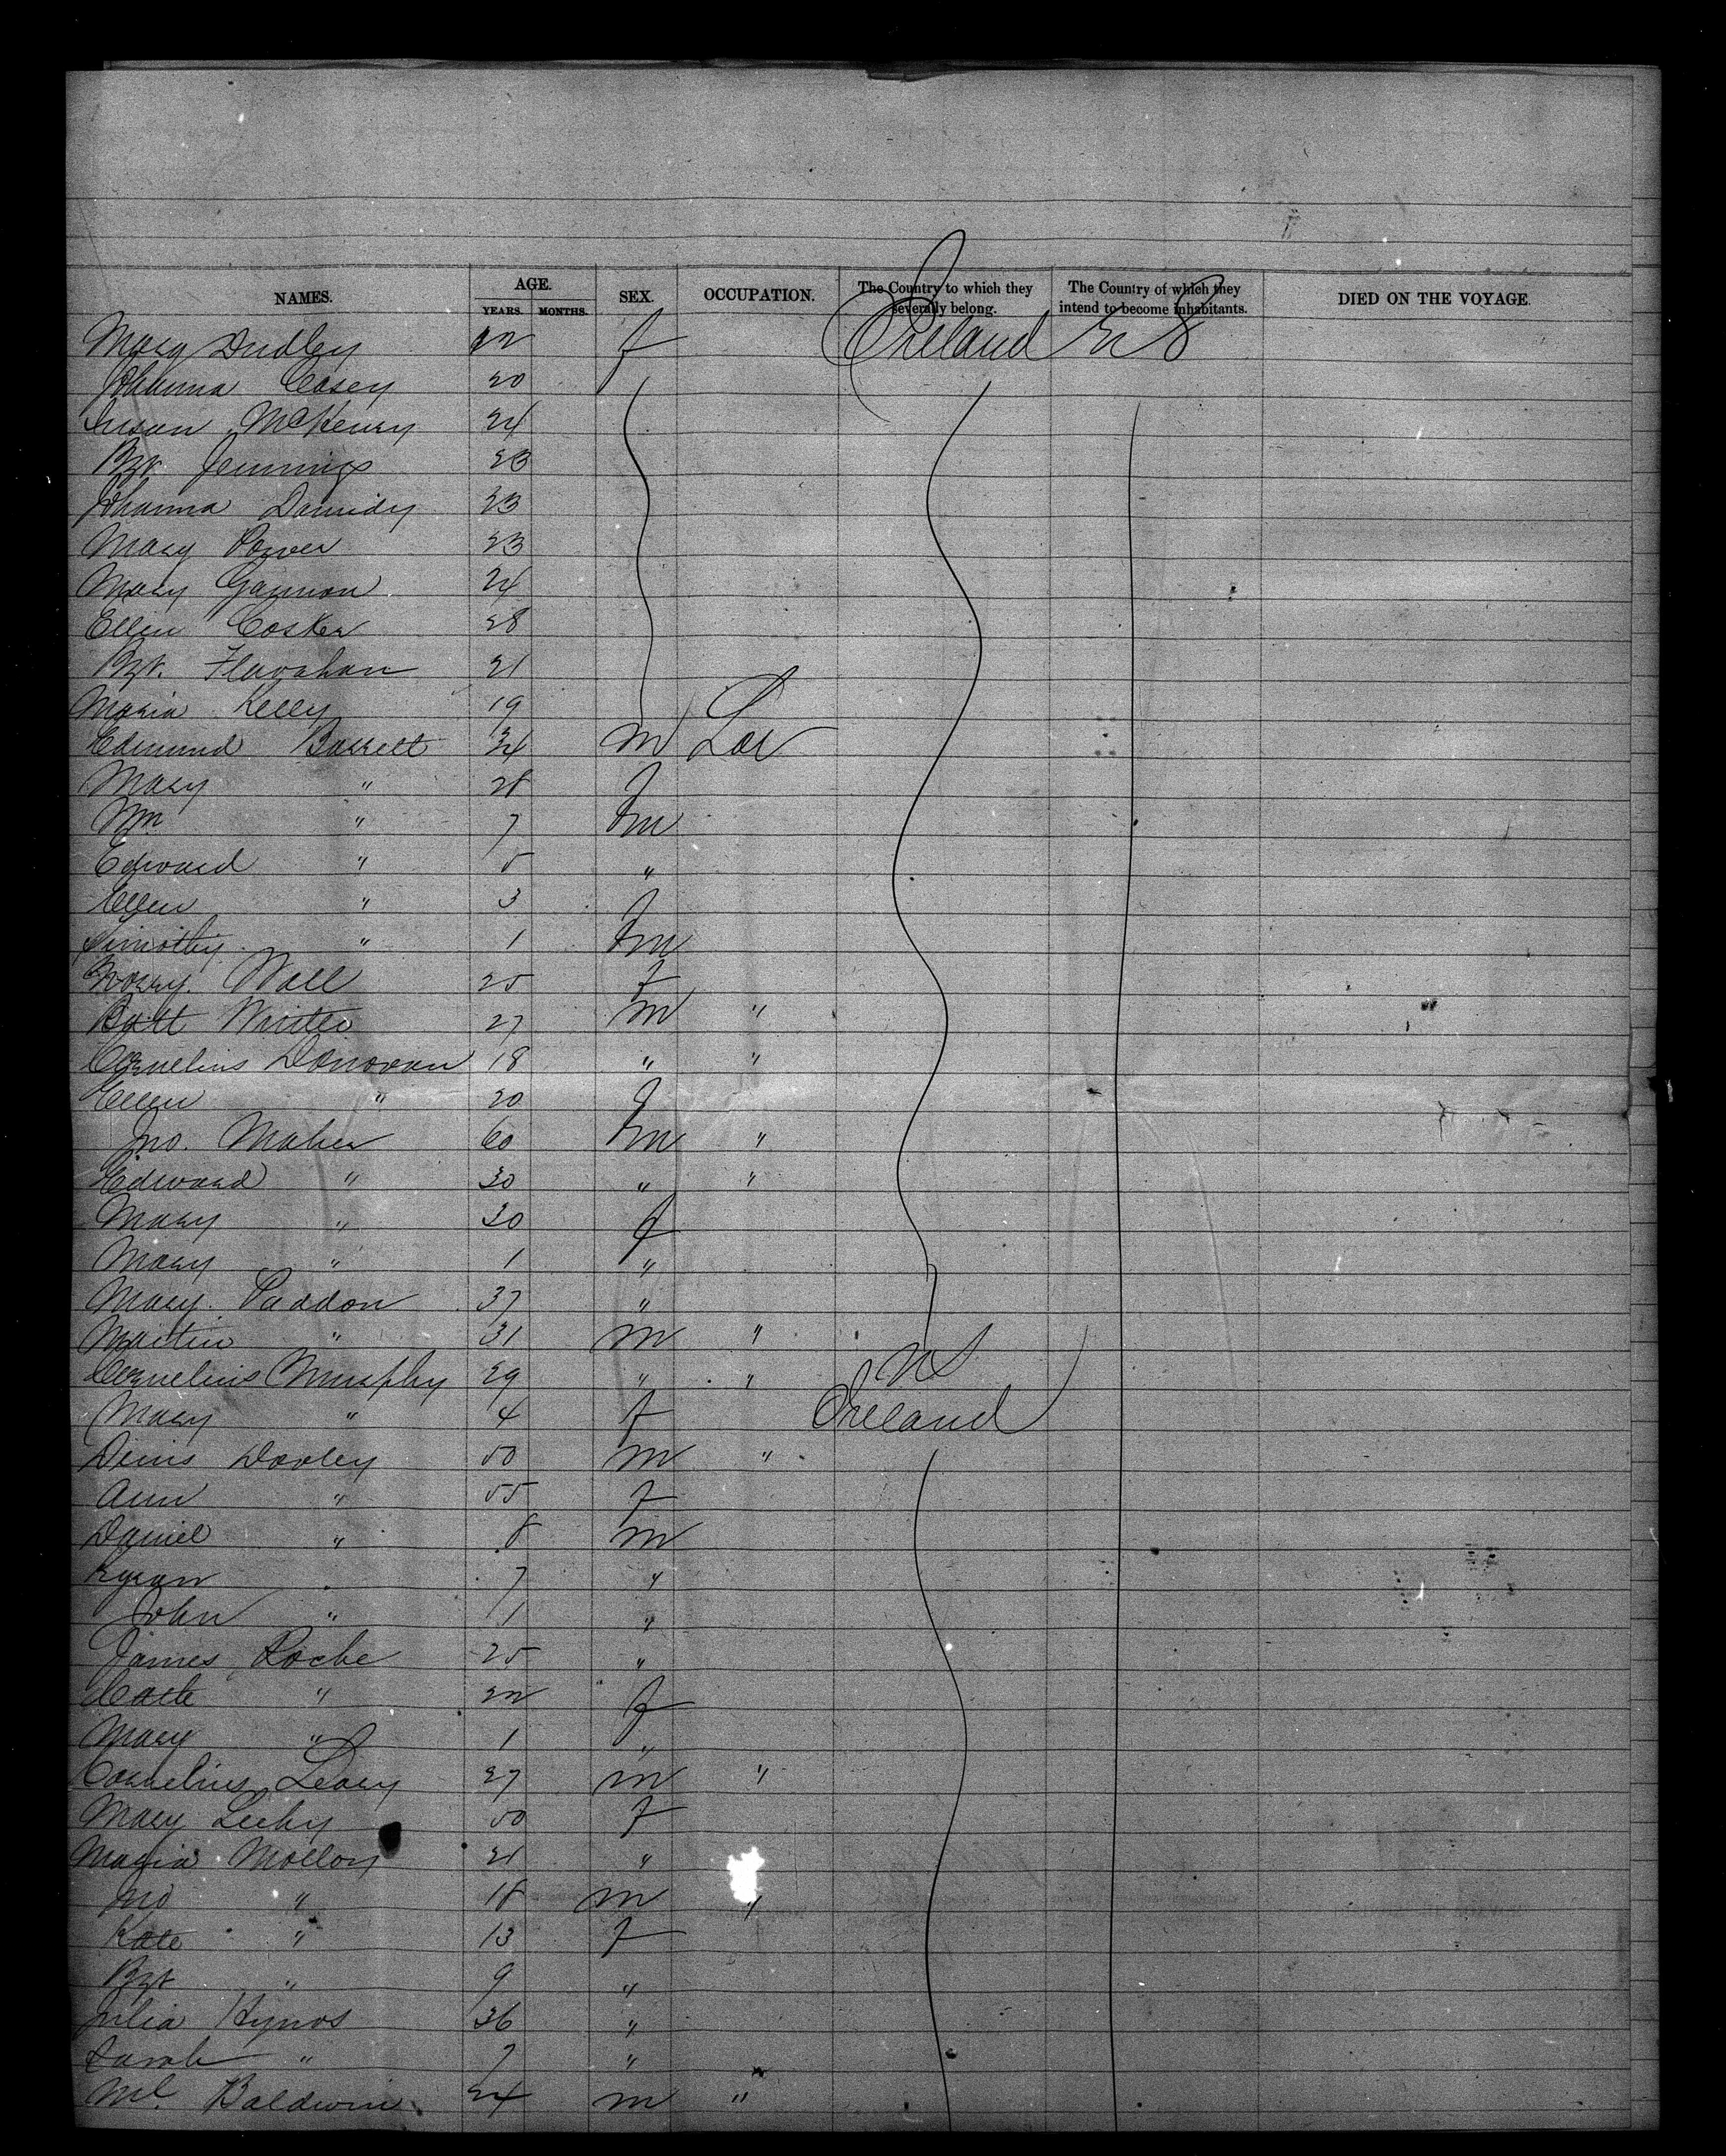 NAMES. AGE. SEX. OCCUPATION. The Country to which they severally belong. The Country of which they intend to become inhabitants. DIED ON THE VOYAGE.
YEARS. MONTHS.
Mary Dudley 22 f Ireland U S
Johanna Casey 20
Susan McKenny 24
Bgt. Jennings 23
Johanna 23
Mary Power 23
Mary Gannon 24
Ellen Cosker 28
Bgt. Flanahan 21
Maria Kelly 19
Edmund Barrett 34 m Lar
Mary " 28 f
Wm " 7 m
Edward " 5 "
Ellen " 3 f
Timothy " 1 m
Wall 25 f
Batt 27 m "
Cornelius Donovan 18 " "
Ellen " 20 f
Jno. Maher 60 m "
Edward " 30 " "
Mary " 30 f
Mary " 1 "
Mary Paddon 37 "
Martin " 31 m "
Cornelius Murphy 29 " " US
Mary " 4 f Ireland
Denis Dooley 50 m "
Ann " 55 f
Daniel " 8 m
Kyran " 7 "
John " 1 "
James Roche 25 "
Cath " 22 f
Mary " 1 "
Cornelius Leary 27 m "
Mary Leehy 50 f
Maria Molloy 21 "
Jno " 18 m "
Kate " 13 f
Bgt " 9 "
Julia Hynos 36 "
Sarah " 7 "
Ml. Baldwin 24 m "